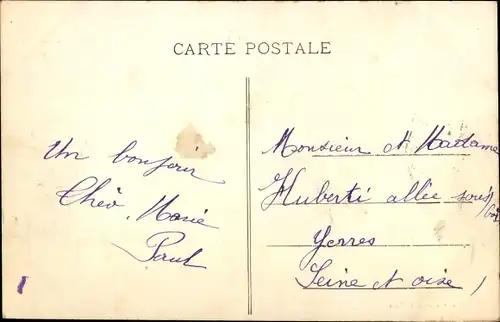 CARTE POSTALE
Un bonjour
Théo Marie
Paul
Monsieur et Madame
Huberti allée sous
Bois
Yerres
Seine et oise